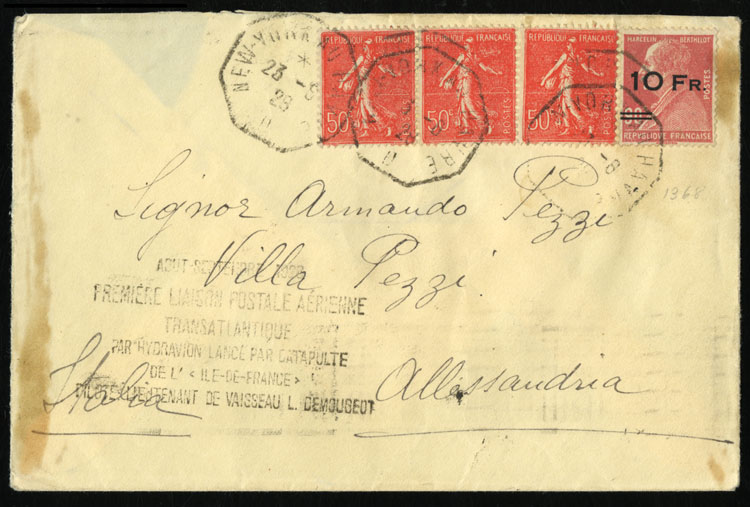 NEW-YORK
23 -8
28
REPUBLIQUE FRANÇAISE
50c
POSTES
REPUBLIQUE FRANÇAISE
50c
POSTES
REPUBLIQUE FRANÇAISE
50c
POSTES
MARCELIN BERTHELOT
10 FR.
90c
POSTES
REPVBLIQVE FRANÇAISE
1368
Signor Armando Pezzi
Villa Pezzi
AOUT-SEPTEMBRE 1928
PREMIÈRE LIAISON POSTALE AÉRIENNE
TRANSATLANTIQUE
PAR HYDRAVION LANCÉ PAR CATAPULTE
DE L' « ILE-DE-FRANCE »
PILOTE : LIEUTENANT DE VAISSEAU L. DEMOUGEOT
Allessandria
Italia